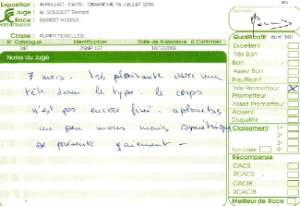 Exposition : AURILLAC - CACS - DIMANCHE 18 JUILLET 2010
Juge :
Race : BASSET HOUND
Classe : PUPPY FEMELLES
N° Catalogue
Identification
Date de Naissance
à Confirmer
Notes du Juge
7 mois. très plaisante avec une
tête dans le type. le corps
n'est pas encore fini. aplombs
un peu mous mais symétrique
se présente gaiement -
Qualificatif
Excellent
Très Bon
Bon
Assez Bon
Insuffisant
Très Prometteur
Prometteur
Assez Prometteur
Absent
Disqualifié
Classement
1
Non Classé
Récompense
CACS
RCACS
CACIB
RCACIB
Meilleur de Race